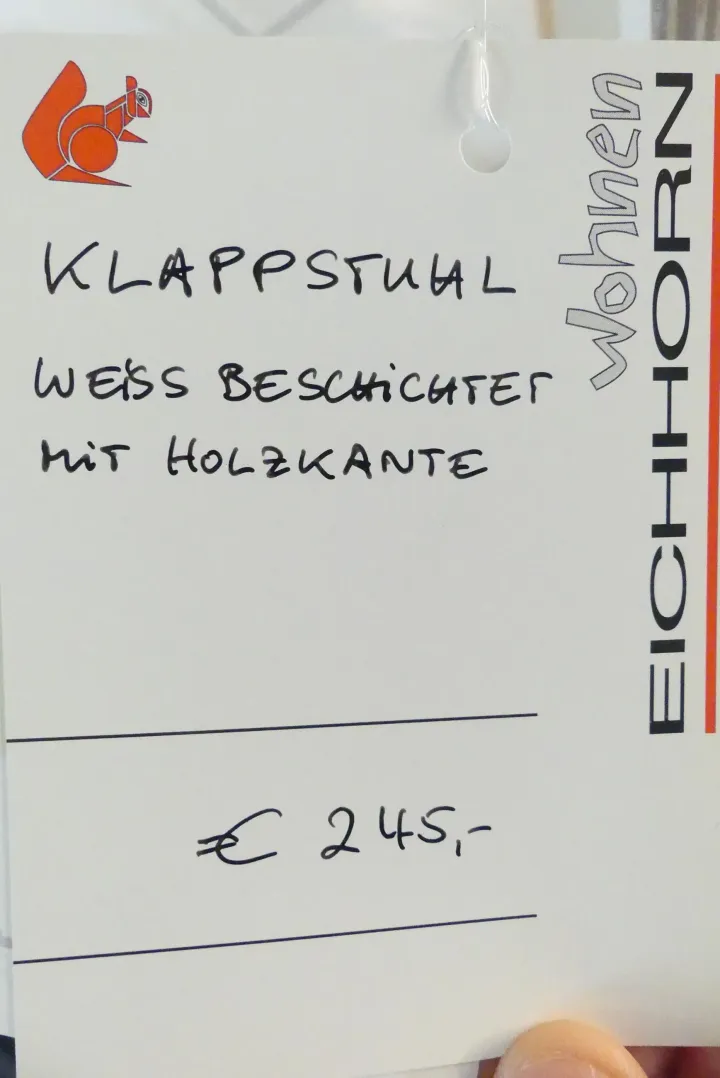 KLAPPSTUHL
WEISS BESCHICHTET
MIT HOLZKANTE
€ 245,-
Wohnen
EICHHORN